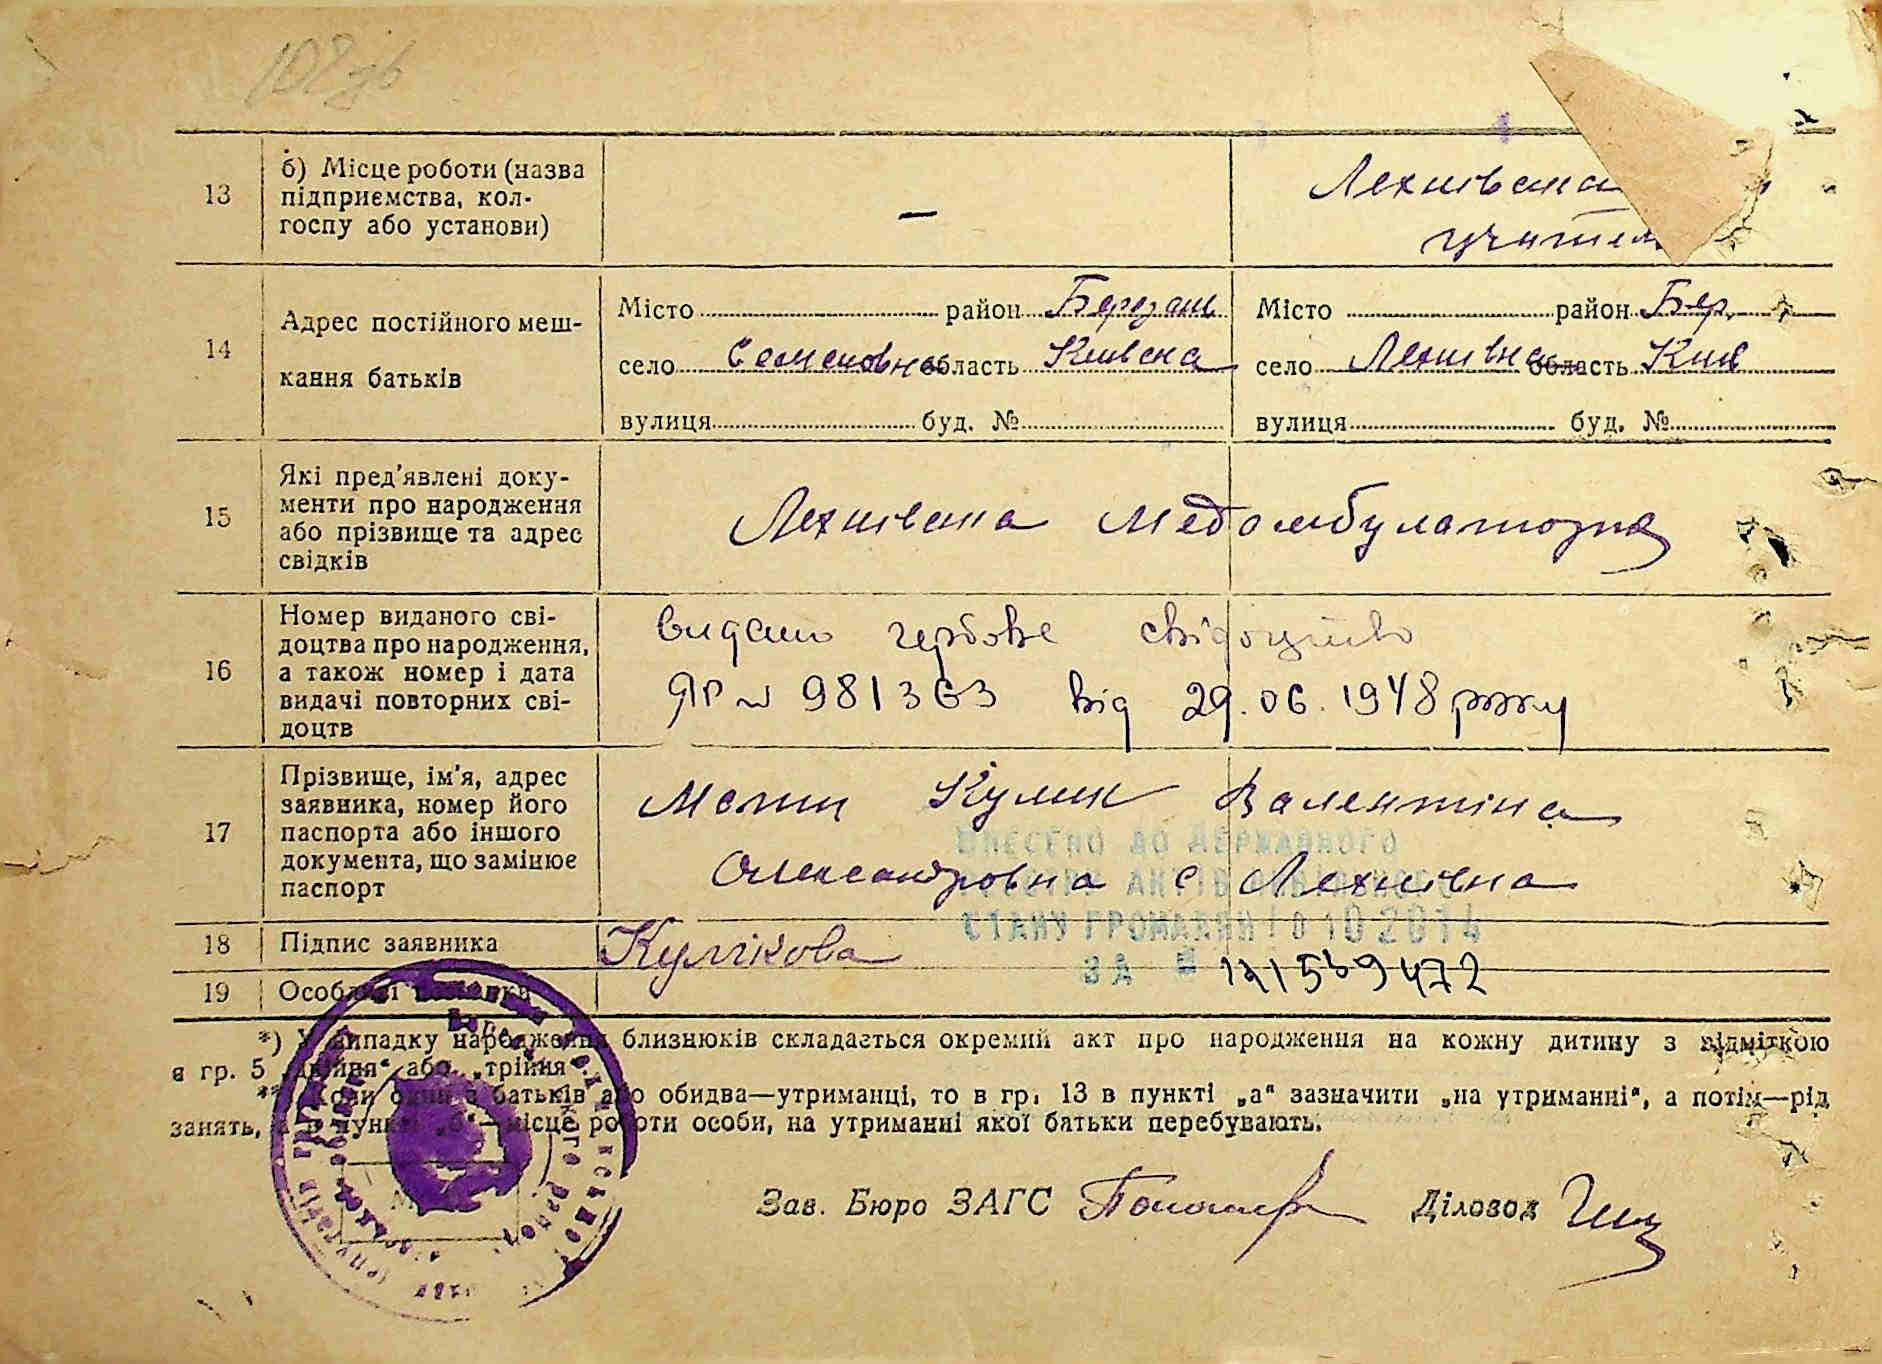 108 зв
13
б) Місце роботи (назва
підприємства, кол-
госпу або установи)
—
Лехнівська
учитель
14
Адрес постійного меш-
кання батьків
Місто район Березань
село Семеновка область Київска
вулиця буд. №
Місто район Бер.
село Лехнівка область Київ
вулиця буд. №
15
Які пред'явлені доку-
менти про народження
або прізвище та адрес
свідків
Лехнівска Медамбулаторія
16
Номер виданого сві-
доцтва про народження,
а також номер і дата
видачі повторних сві-
доцтв
видано гербове свідоцтво
ЯР № 981363 від 29.06.1948 року
17
Прізвище, ім'я, адрес
заявника, номер його
паспорта або іншого
документа, що замінює
паспорт
Мати Кулик Валентіна
Олександровна с Лехнівка
ВНЕСЕНО ДО ДЕРЖАВНОГО
АКТІВ
СТАНУ ГРОМАДЯН 10 2014
ЗА №
18
Підпис заявника
Кулікова
19
*) У випадку народження близнюків складається окремий акт про народження на кожну дитину з відміткою
в гр. 5 „двійня“ або „трійня“.
** Коли один з батьків або обидва—утриманці, то в гр. 13 в пункті „а“ зазначити „на утриманні“, а потім—рід
занять, а в пункті „б“—місце роботи особи, на утриманні якої батьки перебувають.
Зав. Бюро ЗАГС
Діловод